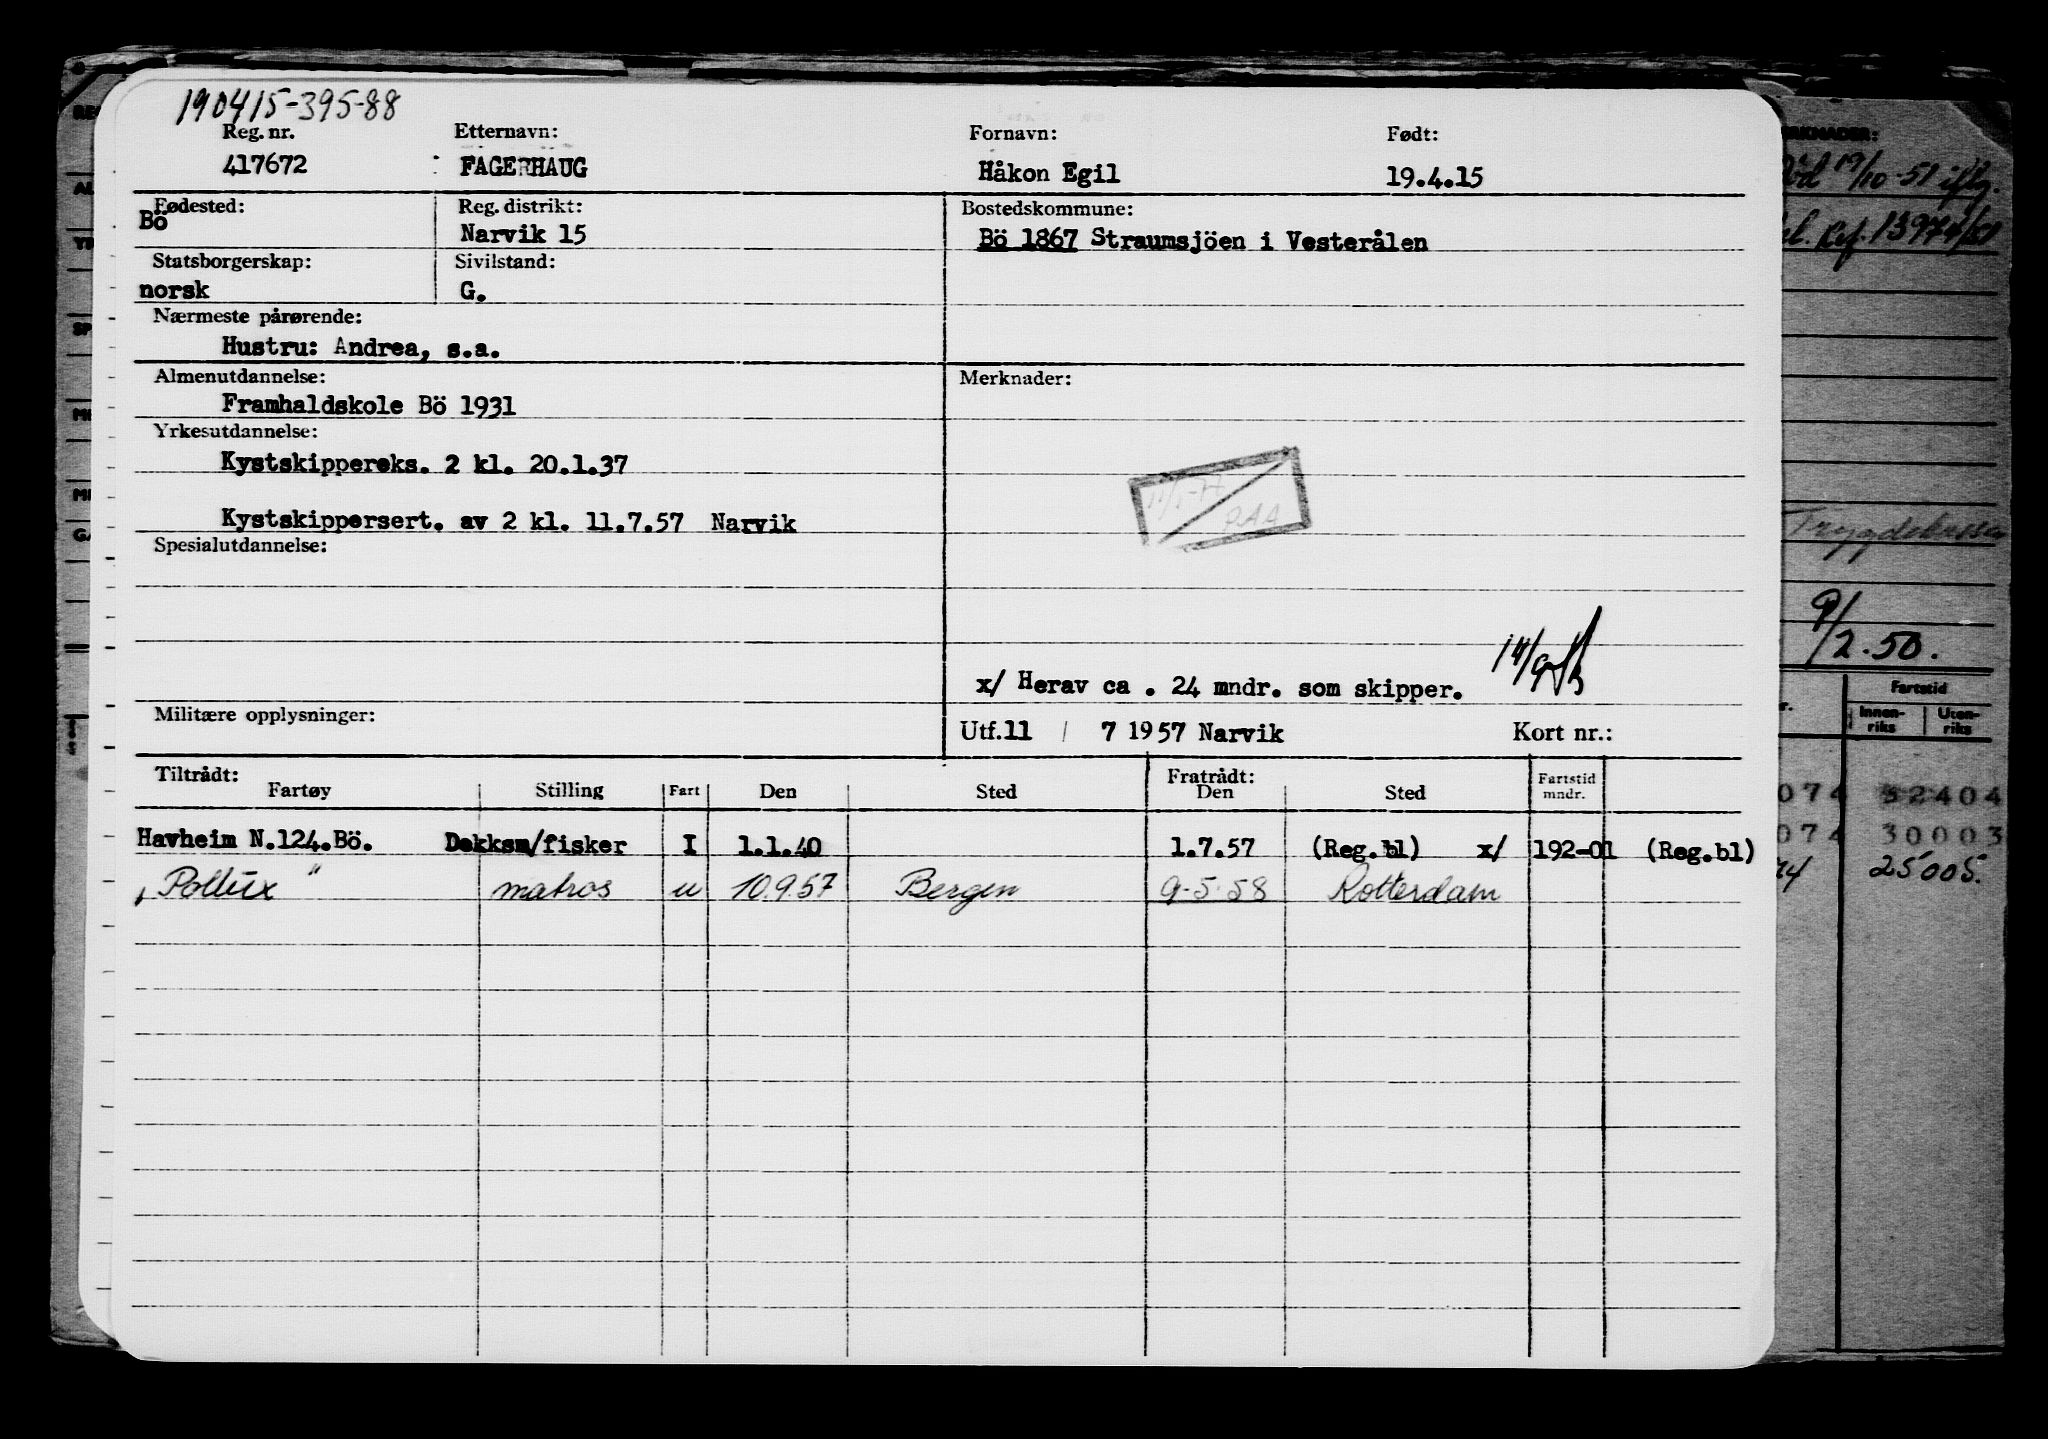 190415-395-88
Reg. nr. Etternavn: Fornavn: Født:
417672 FAGERHAUG Håkon Egil 19.4.15
Fødested: Reg. distrikt: Bostedskommune:
Bö Narvik 15 Bö 1867 Straumsjöen i Vesterålen
Statsborgerskap: Sivilstand:
norsk G.
Nærmeste pårørende:
Hustru: Andrea, s.a.
Almenutdannelse: Merknader:
Framhaldskole Bö 1931
Yrkesutdannelse:
Kystskippereks. 2 kl. 20.1.37
Kystskippersert. av 2 kl. 11.7.57 Narvik
Spesialutdannelse:
x/ Herav ca . 24 mndr. som skipper.
Militære opplysninger: Utf. 11 / 7 1957 Narvik Kort nr.:
Tiltrådt: Fratrådt:
Fartøy Stilling Fart Den Sted Den Sted Fartstid mndr.
Havheim N.124.Bö. Dekksm/fisker I 1.1.40 1.7.57 (Reg.bl) x/ 192-01 (Reg.bl)
„Pollux" matros u 10.9.57 Bergen 9-5-58 Rotterdam
RKNADER:
19/10-51
Ref. 13974/51
Trygdekassen
9/2.50.
Fartstid
Innen-riks Uten-riks
074 32404
074 30003
74 25005.